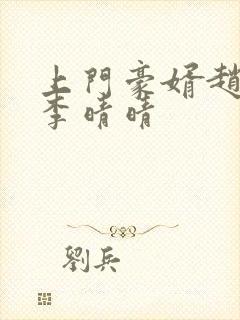 上門豪婿趙
李晴晴
劉兵